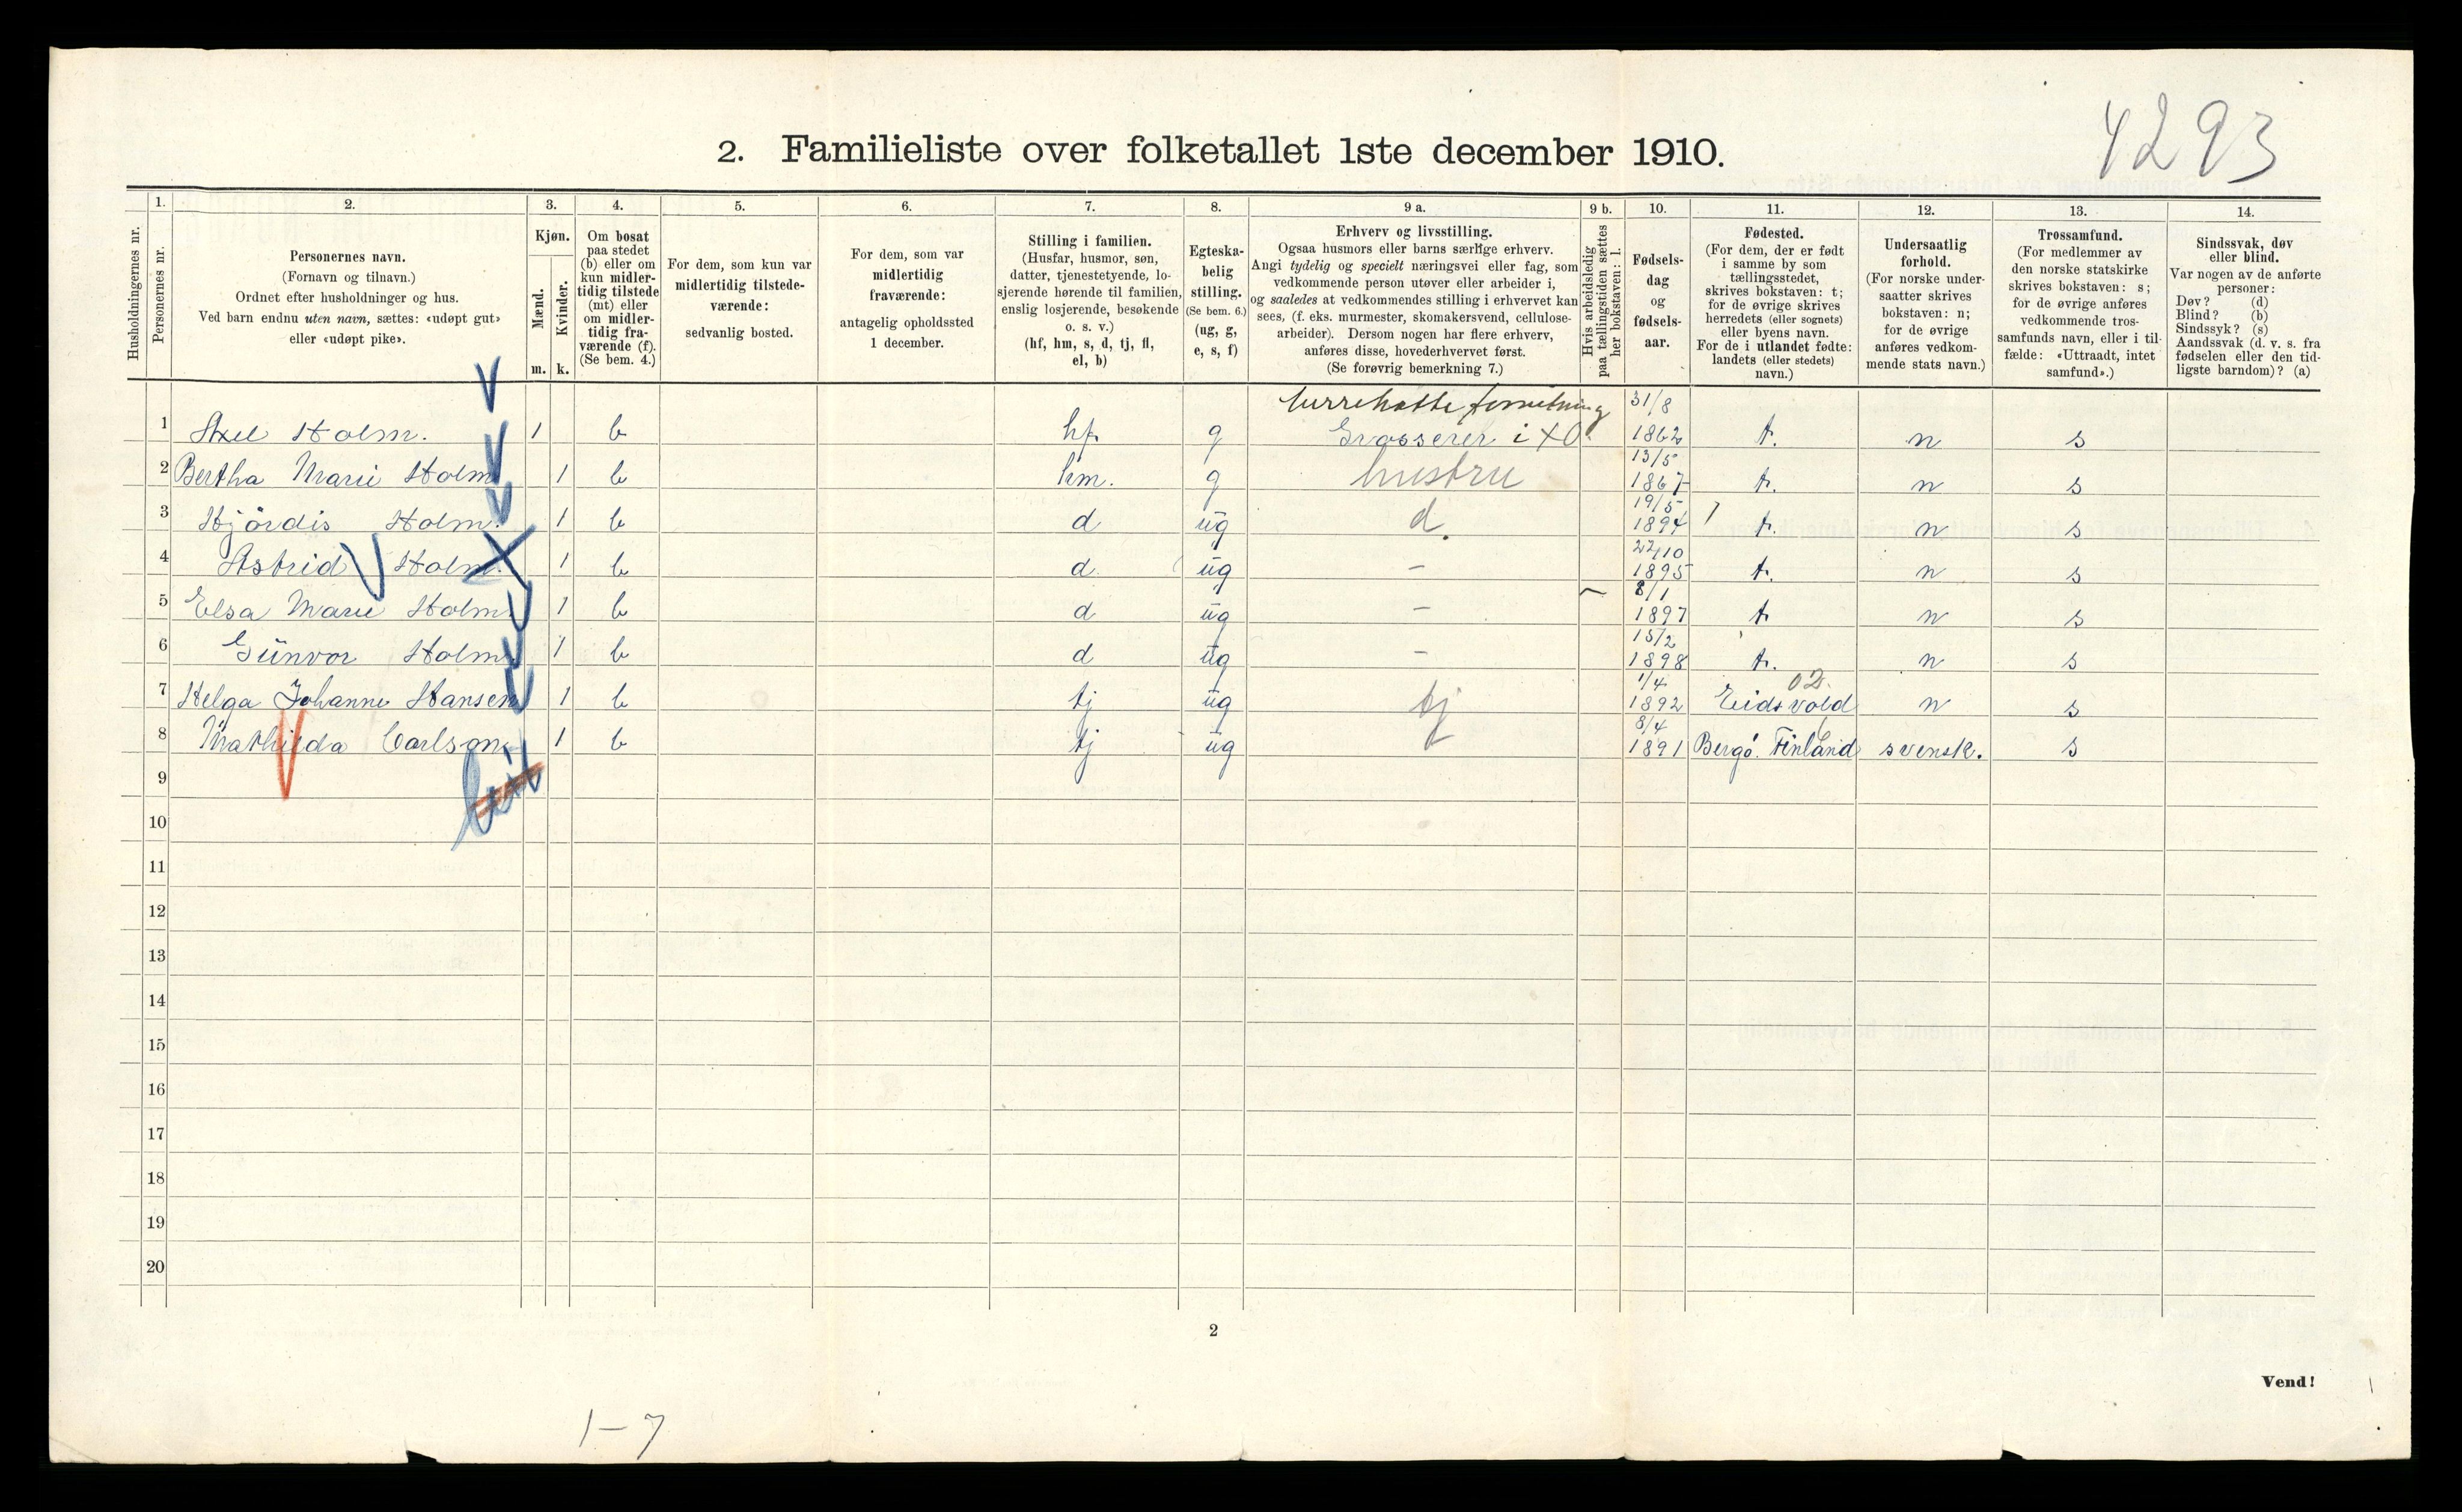 4293
2. Familieliste over folketallet 1ste december 1910.
1. 2. 3. 4. 5. 6. 7. 8. 9 a. 9 b. 10. 11. 12. 13. 14.
Husholdningernes nr.
Personernes nr.
Personernes navn.
(Fornavn og tilnavn.)
Ordnet efter husholdninger og hus.
Ved barn endnu uten navn, sættes: «udøpt gut»
eller «udøpt pike».
Kjøn.
Mænd.
Kvinder.
m. k.
Om bosat
paa stedet
(b) eller om
kun midler-
tidig tilstede
(mt) eller
om midler-
tidig fra-
værende (f).
(Se bem. 4.)
For dem, som kun var
midlertidig tilstede-
værende:
sedvanlig bosted.
For dem, som var
midlertidig
fraværende:
antagelig opholdssted
1 december.
Stilling i familien.
(Husfar, husmor, søn,
datter, tjenestetyende, lo-
sjerende hørende til familien,
enslig losjerende, besøkende
o. s. v.)
(hf, hm, s, d, tj, fl,
el, b)
Egteska-
belig
stilling.
(Se bem. 6.)
(ug, g,
e, s, f)
Erhverv og livsstilling.
Ogsaa husmors eller barns særlige erhverv.
Angi tydelig og specielt næringsvei eller fag, som
vedkommende person utøver eller arbeider i,
og saaledes at vedkommendes stilling i erhvervet kan
sees, (f. eks. murmester, skomakersvend, cellulose-
arbeider). Dersom nogen har flere erhverv,
anføres disse, hovederhvervet først.
(Se forøvrig bemerkning 7.)
Hvis arbeidsledig
paa tællingstiden sættes
her bokstaven: l.
Fødsels-
dag
og
fødsels-
aar.
Fødested.
(For dem, der er født
i samme by som
tællingsstedet,
skrives bokstaven: t;
for de øvrige skrives
herredets (eller sognets)
eller byens navn.
For de i utlandet fødte:
landets (eller stedets)
navn.)
Undersaatlig
forhold.
(For norske under-
saatter skrives
bokstaven: n;
for de øvrige
anføres vedkom-
mende stats navn.)
Trossamfund.
(For medlemmer av
den norske statskirke
skrives bokstaven: s;
for de øvrige anføres
vedkommende tros-
samfunds navn, eller i til-
fælde: «Uttraadt, intet
samfund».)
Sindssvak, døv
eller blind.
Var nogen av de anførte
personer:
Døv? (d)
Blind? (b)
Sindssyk? (s)
Aandssvak (d. v. s. fra
fødselen eller den tid-
ligste barndom)? (a)
31/8
1 Axel Holm. 1 b hf. g Grosserer i 1862 t. n s
13/5
2 Bertha Marie Holm 1 b hm. g hustru 1867 t. n s
19/5
3 Hjördis Holm. 1 b d ug d. 1894 t. n s
22/10
4 Astrid Holm. 1 b d. ug - 1895 t. n s
8/1
5 Elsa Marie Holm 1 b d ug - 1897 t n s
15/2
6 Günvor Holm 1 b d ug - 1898 t. n s
1/4 02.
7 Helga Johanne Hansen 1 b tj ug tj 1892 Eidsvold n s
8/4
8 Mathilda Carlson. 1 b tj ug 1891 Bergö. Finland svensk. s
9
10
11
12
13
14
15
16
17
18
19
20
2
Vend!
1-7